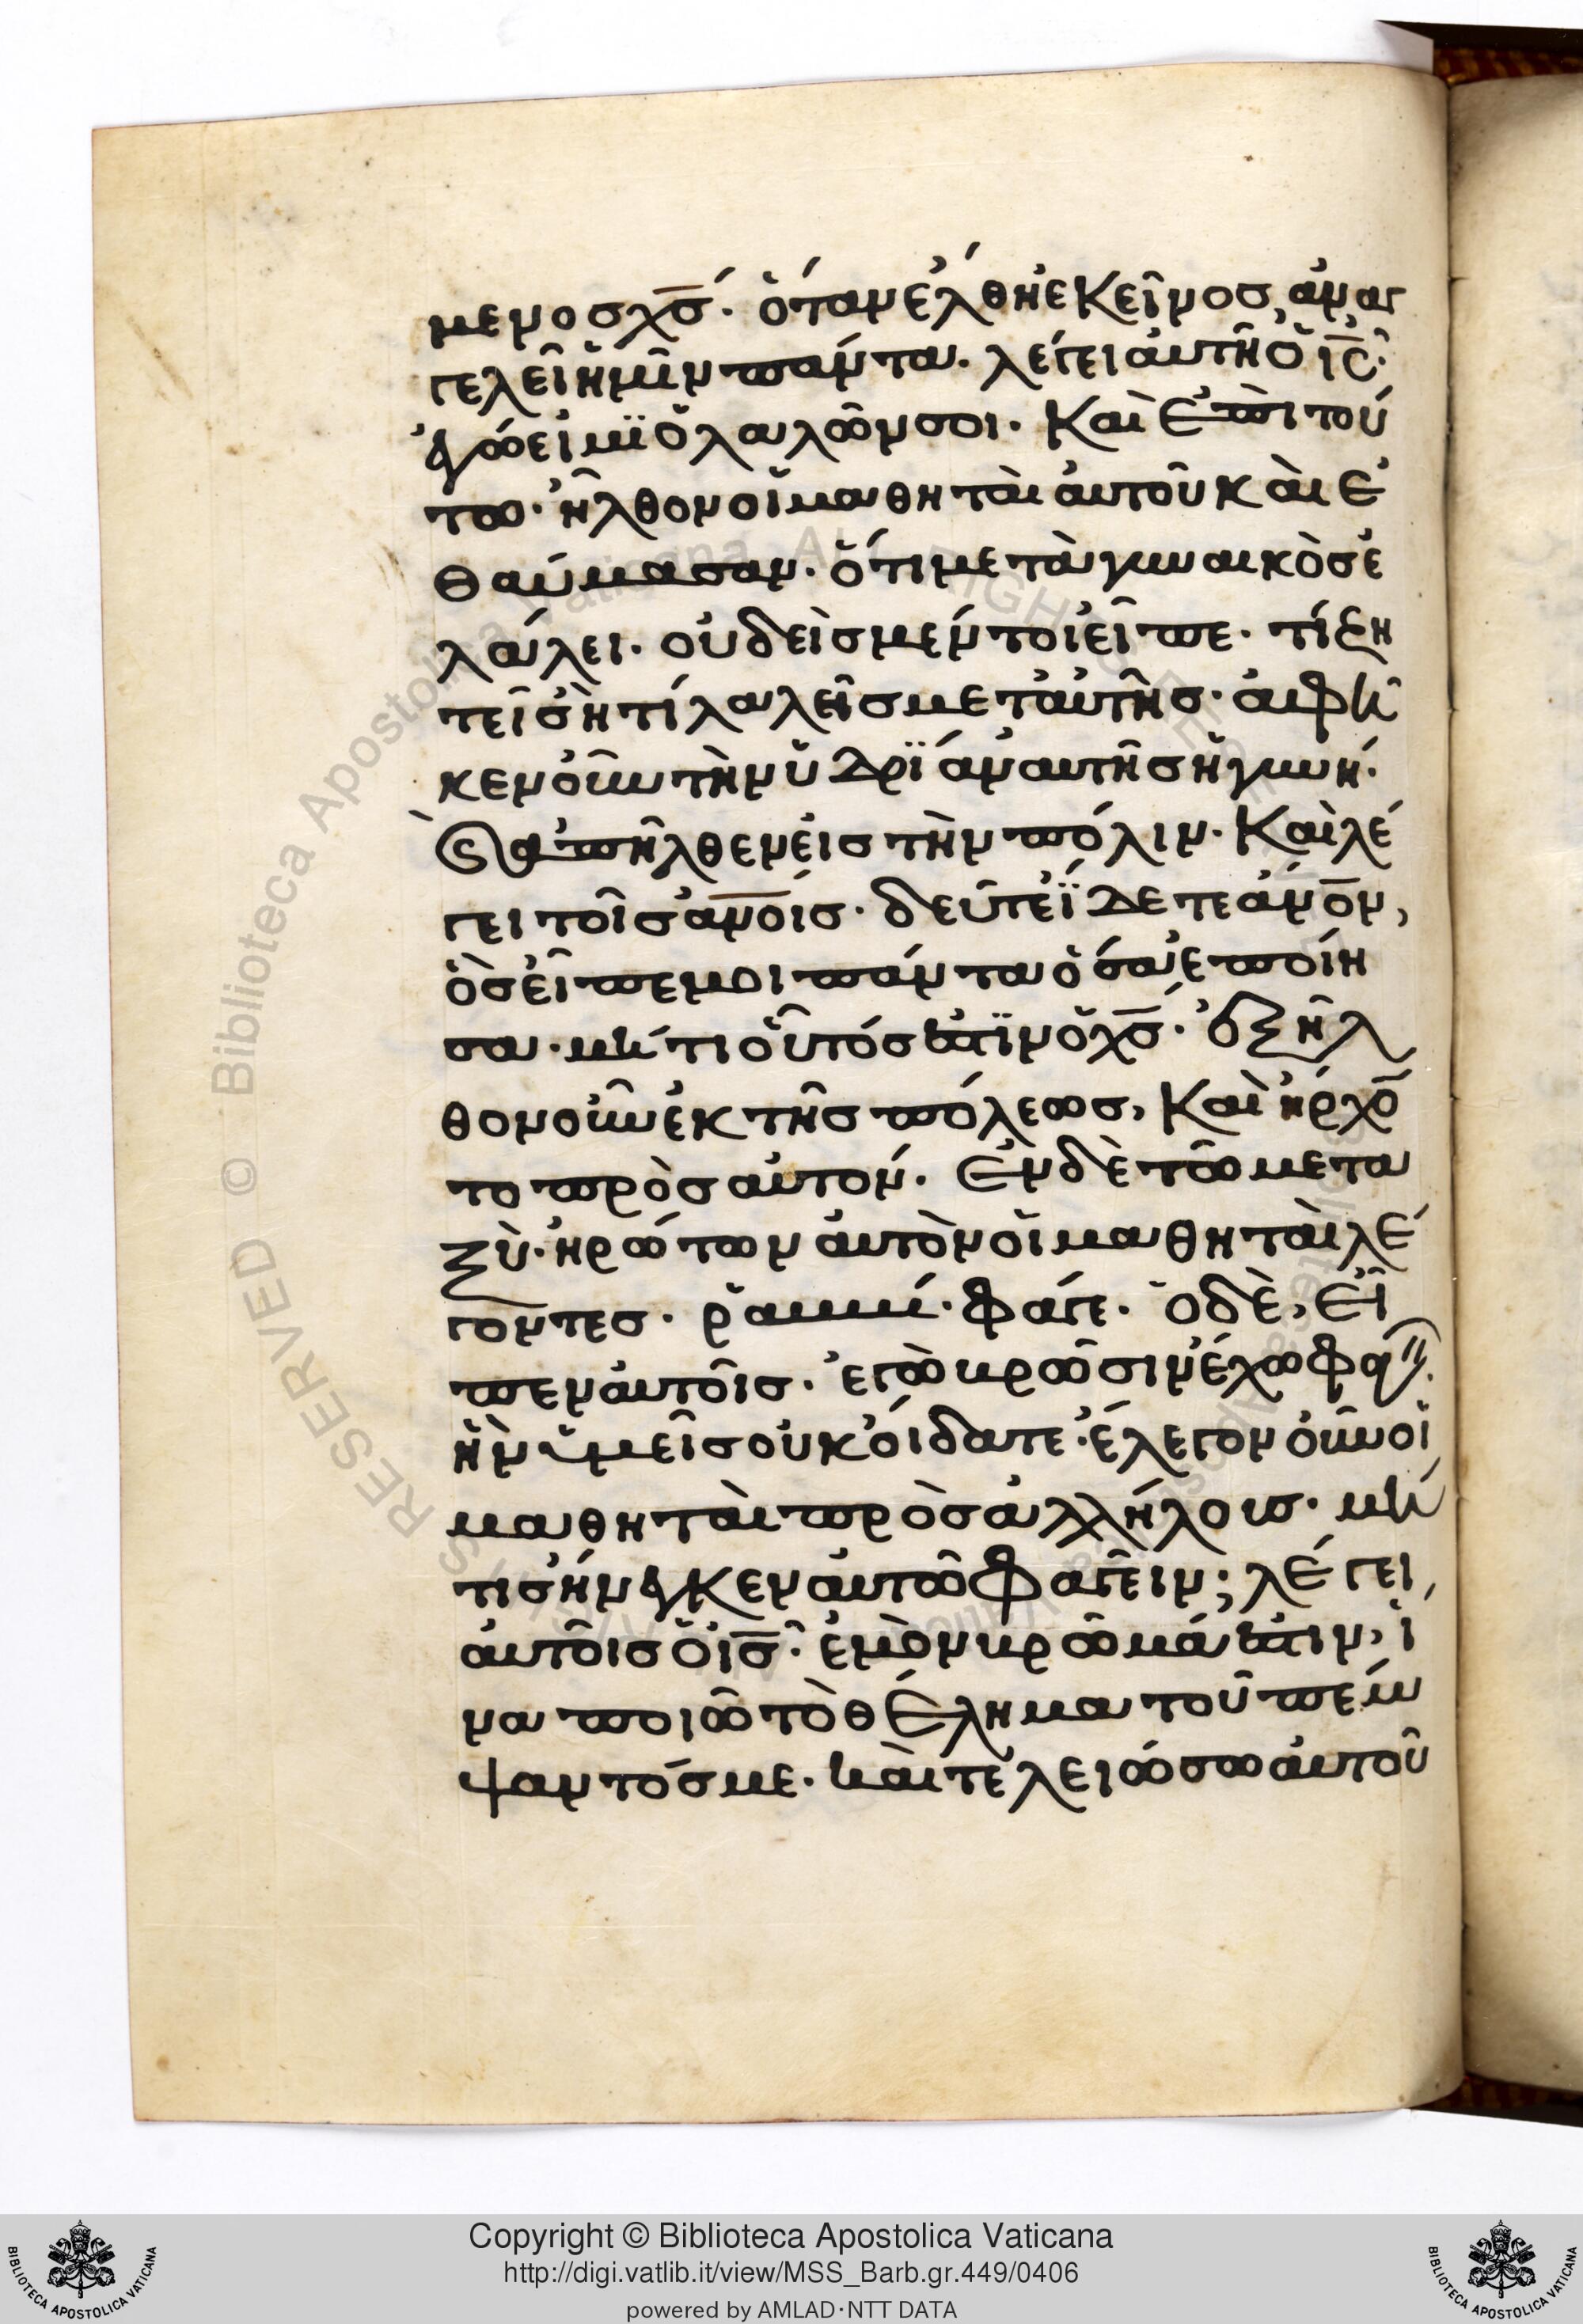 μενοσ χ̅σ̅. ὅταν ἔλθη ἐκεῖνοσ, ἀναγ
γελεῖ ἡμῖν πάντα. λέγει αὐτῆ ὁ ι̅ς̅.
ἐγώ εἰμϊ ὁ λαλῶν σοι. Καὶ ἐπὶ τού
τω. ἦλθον οἱ μαθηταὶ αὐτοῦ καὶ ἐ
θαύμασαν. ὅτι μετὰ γυναικὸσ ἐ
λάλει. οὐδεὶσ μέντοι εἶπε. τί ζη
τεῖσ ἢ τί λαλεῖσ μετ' αὐτῆσ. ἀφῆ
κεν οὖν τὴν ὑδρϊάν αὐτῆσ ἡ γυνή.
καὶ ἀπῆλθεν εἰσ τὴν πόλιν. Καὶ λέ
γει τοῖσ α̅ν̅ο̅ισ. δεῦτε ἴδετε α̅ν̅ο̅ν,
ὃσ εἶπέ μοι πάντα ὅσα ἐποίη
σα. μήτι οὗτόσ ἐστϊν ὁ χ̅σ̅. ἐξῆλ
θον οὖν ἐκ τῆσ πόλεωσ, Καὶ ἤρχο̅
το πρὸσ αὐτόν. Ἐν δὲ τῶ μετα
ξὺ. ἠρώτων αὐτὸν οἱ μαθηταὶ λέ
γοντεσ. ῥαββί. φάγε. ὁ δὲ, εἶ
πεν αὐτοῖσ. ἐγὼ βρῶσιν ἔχω φαγεῖν.
ἣν ὑμεῖσ οὐκ οἴδατε. ἔλεγον οὖν οἱ
μαθηταὶ πρὸσ ἀλλήλουσ. μή
τισ ἤνεγκεν αὐτῶ φαγεῖν; λέγει
αὐτοῖσ ὁ ι̅σ̅. ἐμὸν βρῶμά ἐστιν, ἵ
να ποιῶ τὸ θέλημα τοῦ πέμ
ψαντόσ με. καὶ τελειώσω αὐτοῦ
Copyright © Biblioteca Apostolica Vaticana
http://digi.vatlib.it/view/MSS_Barb.gr.449/0406
powered by AMLAD·NTT DATA